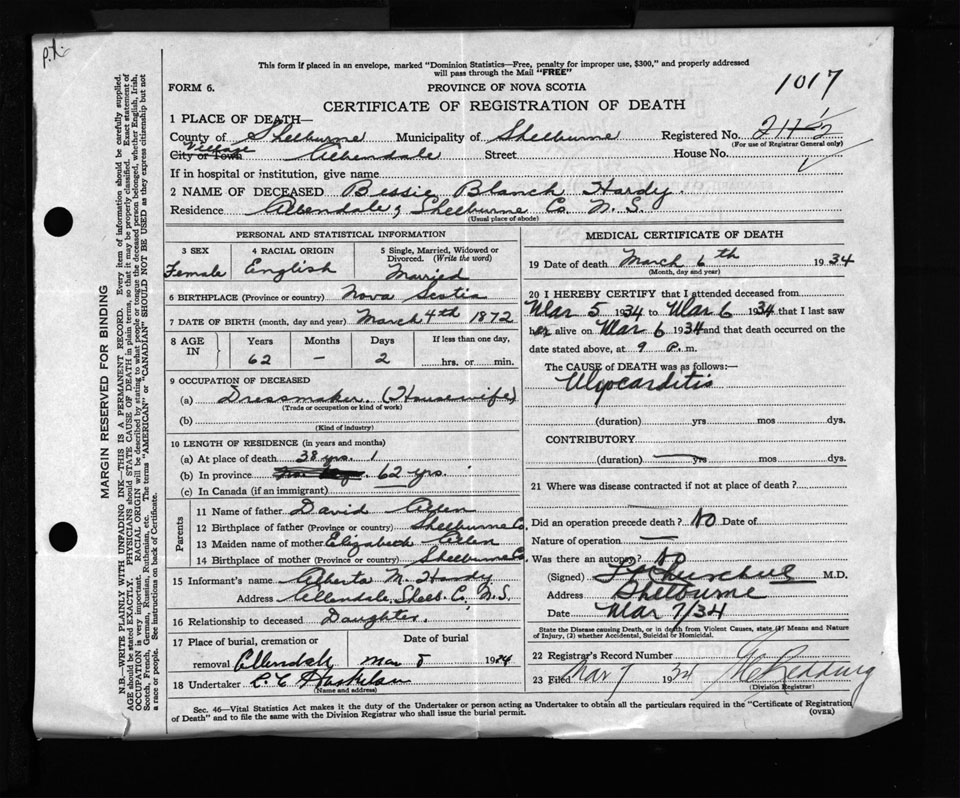 This form if placed in an envelope, marked "Dominion Statistics—Free, penalty for improper use, $300," and properly addressed
will pass through the Mail "FREE"
1017
FORM 6.
PROVINCE OF NOVA SCOTIA
CERTIFICATE OF REGISTRATION OF DEATH
1 PLACE OF DEATH—
County of Shelburne Municipality of Shelburne Registered No.
(For use of Registrar General only)
Village
City or Town Allendale Street House No.
If in hospital or institution, give name
2 NAME OF DECEASED Bessie Blanch Hardy.
Residence Allendale, Shelburne Co. N. S.
(Usual place of abode)
PERSONAL AND STATISTICAL INFORMATION
3 SEX
Female
4 RACIAL ORIGIN
English
5 Single, Married, Widowed or
Divorced. (Write the word)
Married
6 BIRTHPLACE (Province or country) Nova Scotia
7 DATE OF BIRTH (month, day and year) March 4th 1872
8 AGE IN
Years Months Days If less than one day,
62 — 2 hrs. or min.
9 OCCUPATION OF DECEASED
(a) Dressmaker. (Housewife)
(Trade or occupation or kind of work)
(b)
(Kind of industry)
10 LENGTH OF RESIDENCE (in years and months)
(a) At place of death 38 yrs. 1
(b) In province 62 yrs.
(c) In Canada (if an immigrant)
Parents
11 Name of father David Allen
12 Birthplace of father (Province or country) Shelburne Co.
13 Maiden name of mother Elizabeth Allen
14 Birthplace of mother (Province or country) Shelburne Co.
15 Informant's name Alberta M. Hardy
Address Allendale, Shelb. Co. N.S.
16 Relationship to deceased Daughter.
17 Place of burial, cremation or Date of burial
removal Allendale Mar 8 1934
18 Undertaker
(Name and address)
MEDICAL CERTIFICATE OF DEATH
19 Date of death March 6th 1934
(Month, day and year)
20 I HEREBY CERTIFY that I attended deceased from
Mar 5 1934 to Mar 6 1934 that I last saw
her alive on Mar 6 1934 and that death occurred on the
date stated above, at 9 P. m.
The CAUSE of DEATH was as follows:—
Myocarditis
(duration) yrs mos dys.
CONTRIBUTORY
(duration) yrs mos dys.
21 Where was disease contracted if not at place of death?
Did an operation precede death? No Date of
Nature of operation —
Was there an autopsy? No
(Signed) M.D.
Address Shelburne
Date Mar 7/34
State the Disease causing Death, or in death from Violent Causes, state (1) Means and Nature
of Injury, (2) whether Accidental, Suicidal or Homicidal.
22 Registrar's Record Number
23 Filed Mar 7 1934
(Division Registrar)
Sec. 46—Vital Statistics Act makes it the duty of the Undertaker or person acting as Undertaker to obtain all the particulars required in the "Certificate of Registration
of Death" and to file the same with the Division Registrar who shall issue the burial permit.
(OVER)
MARGIN RESERVED FOR BINDING
N.B.—WRITE PLAINLY WITH UNFADING INK—THIS IS A PERMANENT RECORD. Every item of information should be carefully supplied.
AGE should be stated EXACTLY. PHYSICIANS should STATE CAUSE OF DEATH in plain terms, so that it may be properly classified. Exact statement of
OCCUPATION is very important. RACIAL ORIGIN will be described by stating to what people or tongue the deceased person belonged, whether English, Irish,
Scotch, French, German, Russian, Ruthenian, etc. The terms "AMERICAN" or "CANADIAN" SHOULD NOT BE USED as they express citizenship but not
a race or people. See instructions on back of Certificate.